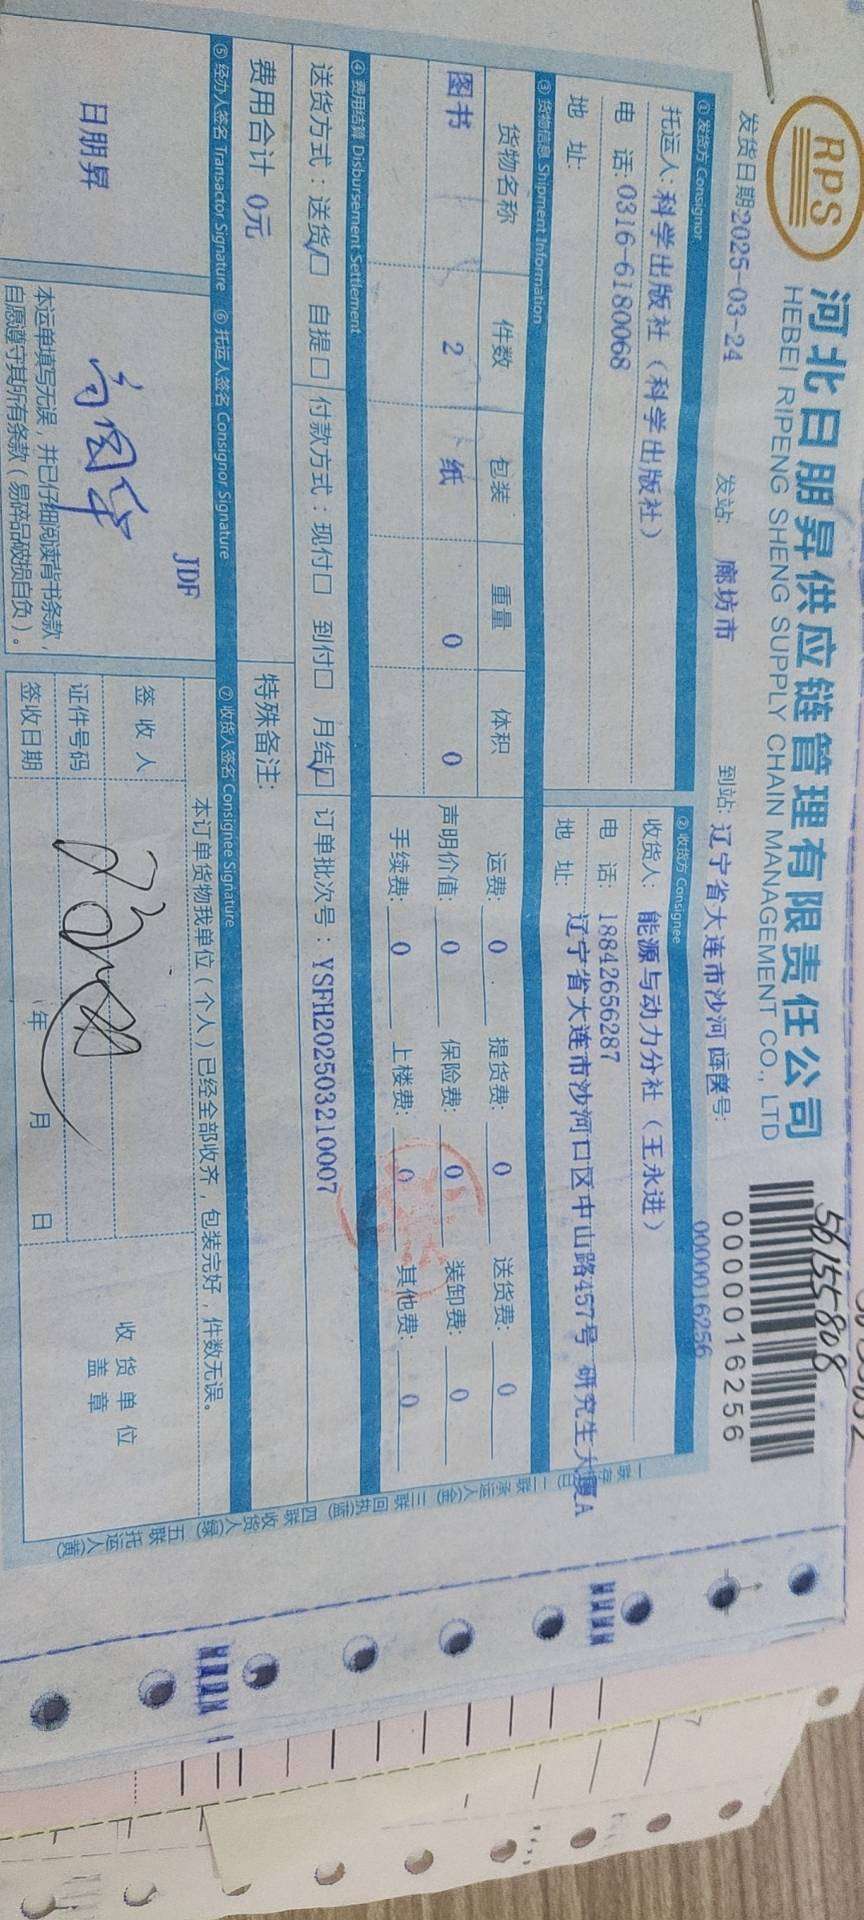 RPS
河北日朋昇供应链管理有限责任公司
HEBEI RIPENG SHENG SUPPLY CHAIN MANAGEMENT CO., LTD
56155808
0000016256
发货日期2025-03-24 发站 廊坊市 到站: 辽宁省大连市沙河 号:
0000016256
① 发货方 Consignor
② 收货方 Consignee
托运人: 科学出版社（科学出版社）
收货人: 能源与动力分社（王永进）
电 话: 0316-6180068
电 话: 18842656287
地 址:
地 址: 辽宁省大连市沙河口区中山路457号 研究生大厦A
③ 货物信息 Shipment Information
货物名称 件数 包装 重量 体积
运费: 0 提货费: 0 送货费: 0
图书 2 纸 0 0
声明价值: 0 保险费: 0 装卸费: 0
手续费: 0 上楼费: 0 其他费: 0
④ 费用结算 Disbursement Settlement
送货方式：送货☑ 自提□ 付款方式：现付□ 到付□ 月结☑ 订单批次号：YSFH202503210007
费用合计 0元
特殊备注:
⑤ 经办人签名 Transactor Signature ⑥ 托运人签名 Consignor Signature ⑦ 收货人签名 Consignee Signature
日朋昇
JDF
本运单填写无误，并已仔细阅读背书条款，
自愿遵守其所有条款（易碎品破损自负）。
本订单货物我单位（个人）已经全部收齐，包装完好，件数无误。
签 收 人
证件号码
签收日期 年 月 日
收 货 单 位
盖 章
一联存根(白) 二联承运人(金) 三联回执(蓝) 四联收货人(绿) 五联托运人(黄)